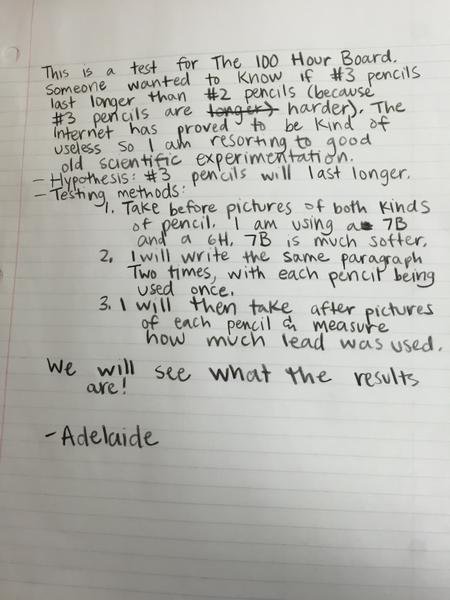 This is a test for The 100 Hour Board.
Someone wanted to know if #3 pencils
last longer than #2 pencils (because
#3 pencils are longer) harder). The
Internet has proved to be kind of
useless so I am resorting to good
old scientific experimentation.
- Hypothesis: #3 pencils will last longer.
- Testing methods:
1. Take before pictures of both kinds
of pencil. I am using a 7B
and a 6H. 7B is much softer.
2. I will write the same paragraph
Two times, with each pencil being
used once.
3. I will then take after pictures
of each pencil & measure
how much lead was used.
We will see what the results
are!
- Adelaide